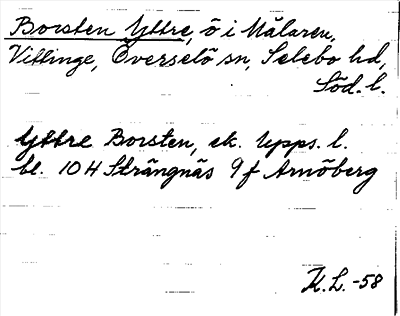 Borsten Yttre, ö i Mälaren,
Vittinge, Överselö sn, Selebo hd,
Söd. l.
Yttre Borsten, ek. Upps. l.
bl. 10 H Strängnäs 9 f Arnöberg
K.L. -58